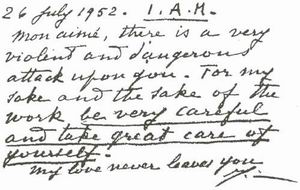 26 July 1952. I.A.M.
mon aimé, there is a very
violent and dangerous
attack upon you. For my
sake and the sake of the
work be very careful
and take great care of
yourself.
my love never leaves you